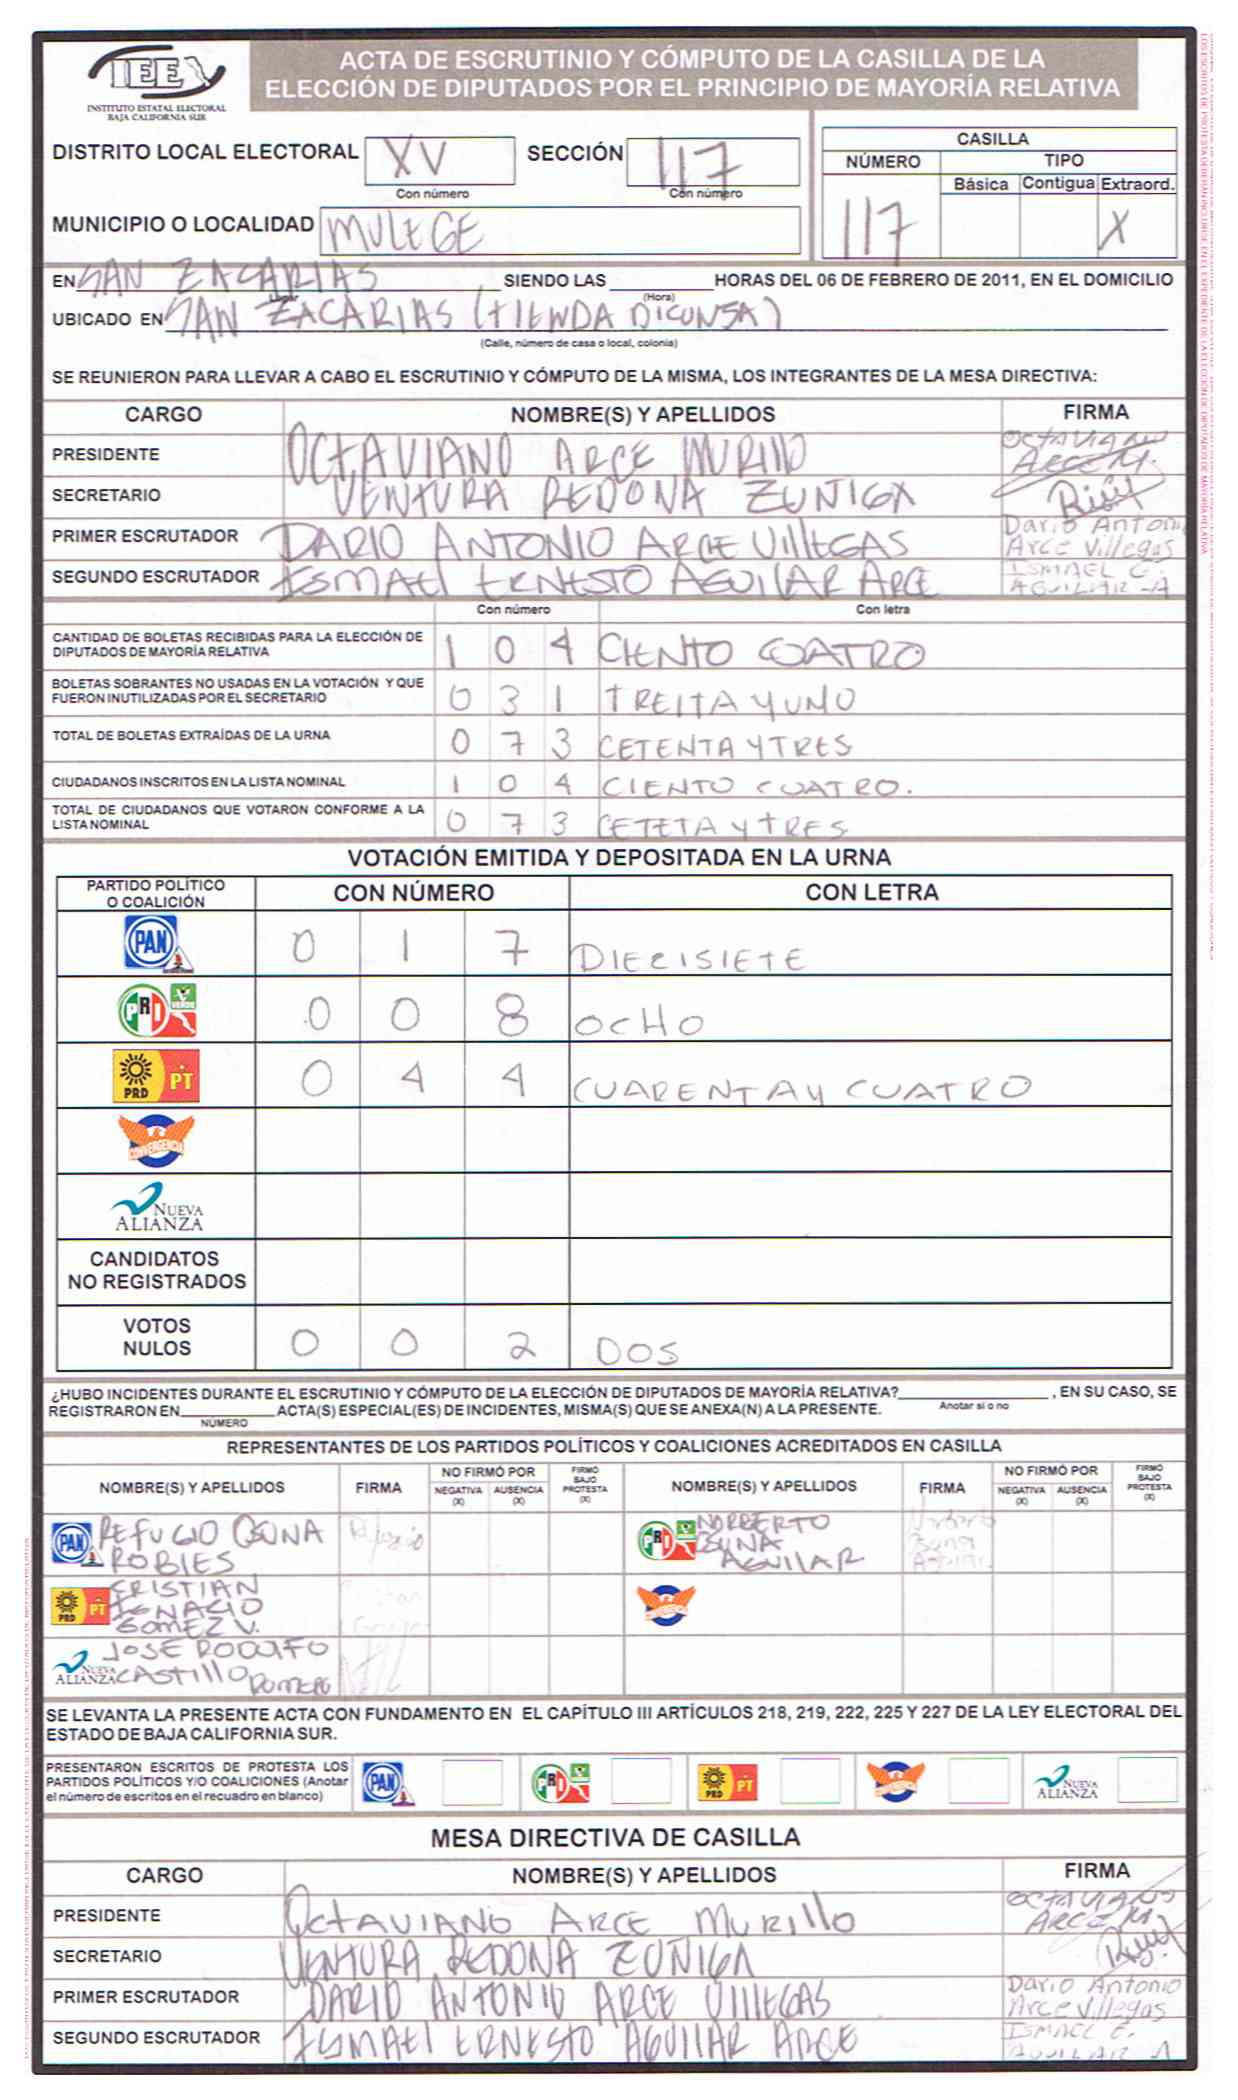 IEE
INSTITUTO ESTATAL ELECTORAL
BAJA CALIFORNIA SUR
ACTA DE ESCRUTINIO Y CÓMPUTO DE LA CASILLA DE LA
ELECCIÓN DE DIPUTADOS POR EL PRINCIPIO DE MAYORÍA RELATIVA
DISTRITO LOCAL ELECTORAL XV SECCIÓN 117
Con número Con número
MUNICIPIO O LOCALIDAD MULEGE
CASILLA
NÚMERO TIPO
Básica Contigua Extraord.
117 X
EN SAN ZACARIAS SIENDO LAS HORAS DEL 06 DE FEBRERO DE 2011, EN EL DOMICILIO
Lugar (Hora)
UBICADO EN SAN ZACARIAS (TIENDA DICONSA)
(Calle, número de casa o local, colonia)
SE REUNIERON PARA LLEVAR A CABO EL ESCRUTINIO Y CÓMPUTO DE LA MISMA, LOS INTEGRANTES DE LA MESA DIRECTIVA:
CARGO NOMBRE(S) Y APELLIDOS FIRMA
PRESIDENTE OCTAVIANO ARCE MURILLO OCTAVIANO ARCE M.
SECRETARIO VENTURA REDONA ZUÑIGA
PRIMER ESCRUTADOR DARIO ANTONIO ARCE VIllEGAS Dario Antonio Arce Villegas
SEGUNDO ESCRUTADOR ISMAEl ERNESTO AGUILAR ARCE ISMAEL E. AGUILAR A
Con número Con letra
CANTIDAD DE BOLETAS RECIBIDAS PARA LA ELECCIÓN DE
DIPUTADOS DE MAYORÍA RELATIVA 1 0 4 CIENTO CUATRO
BOLETAS SOBRANTES NO USADAS EN LA VOTACIÓN Y QUE
FUERON INUTILIZADAS POR EL SECRETARIO 0 3 1 TREITA Y UNO
TOTAL DE BOLETAS EXTRAÍDAS DE LA URNA 0 7 3 CETENTA Y TRES
CIUDADANOS INSCRITOS EN LA LISTA NOMINAL 1 0 4 CIENTO CUATRO.
TOTAL DE CIUDADANOS QUE VOTARON CONFORME A LA
LISTA NOMINAL 0 7 3 CETETA Y TRES
VOTACIÓN EMITIDA Y DEPOSITADA EN LA URNA
PARTIDO POLÍTICO
O COALICIÓN CON NÚMERO CON LETRA
PAN 0 1 7 DIECISIETE
PRI VERDE 0 0 8 OCHO
PRD PT 0 4 4 CUARENTA Y CUATRO
CONVERGENCIA
NUEVA
ALIANZA
CANDIDATOS
NO REGISTRADOS
VOTOS
NULOS 0 0 2 DOS
¿HUBO INCIDENTES DURANTE EL ESCRUTINIO Y CÓMPUTO DE LA ELECCIÓN DE DIPUTADOS DE MAYORÍA RELATIVA? , EN SU CASO, SE
Anotar sí o no
REGISTRARON EN ACTA(S) ESPECIAL(ES) DE INCIDENTES, MISMA(S) QUE SE ANEXA(N) A LA PRESENTE.
NÚMERO
REPRESENTANTES DE LOS PARTIDOS POLÍTICOS Y COALICIONES ACREDITADOS EN CASILLA
NOMBRE(S) Y APELLIDOS FIRMA NO FIRMÓ POR NEGATIVA (X) AUSENCIA (X) FIRMÓ BAJO PROTESTA (X) NOMBRE(S) Y APELLIDOS FIRMA NO FIRMÓ POR NEGATIVA (X) AUSENCIA (X) FIRMÓ BAJO PROTESTA (X)
PAN REFUGIO OSUNA
ROBlES
PRI NORBERTO
OSUNA
AGUILAR
PRD PT CRISTIAN
IGNACIO
GOMEZ V.
NUEVA ALIANZA JOSE RODOLFO
CASTIllO ROMERO
SE LEVANTA LA PRESENTE ACTA CON FUNDAMENTO EN EL CAPÍTULO III ARTÍCULOS 218, 219, 222, 225 Y 227 DE LA LEY ELECTORAL DEL
ESTADO DE BAJA CALIFORNIA SUR.
PRESENTARON ESCRITOS DE PROTESTA LOS
PARTIDOS POLÍTICOS Y/O COALICIONES (Anotar
el número de escritos en el recuadro en blanco)
PAN PRI PRD PT NUEVA ALIANZA
MESA DIRECTIVA DE CASILLA
CARGO NOMBRE(S) Y APELLIDOS FIRMA
PRESIDENTE OCTAVIANO ARCE MURIllO OCTAVIANO ARCE M
SECRETARIO VENTURA REDONA ZUÑIGA
PRIMER ESCRUTADOR DARIO ANTONIO ARCE VIllEGAS Dario Antonio Arce Villegas
SEGUNDO ESCRUTADOR ISMAEl ERNESTO AGUILAR ARCE ISMAEL E. AGUILAR A